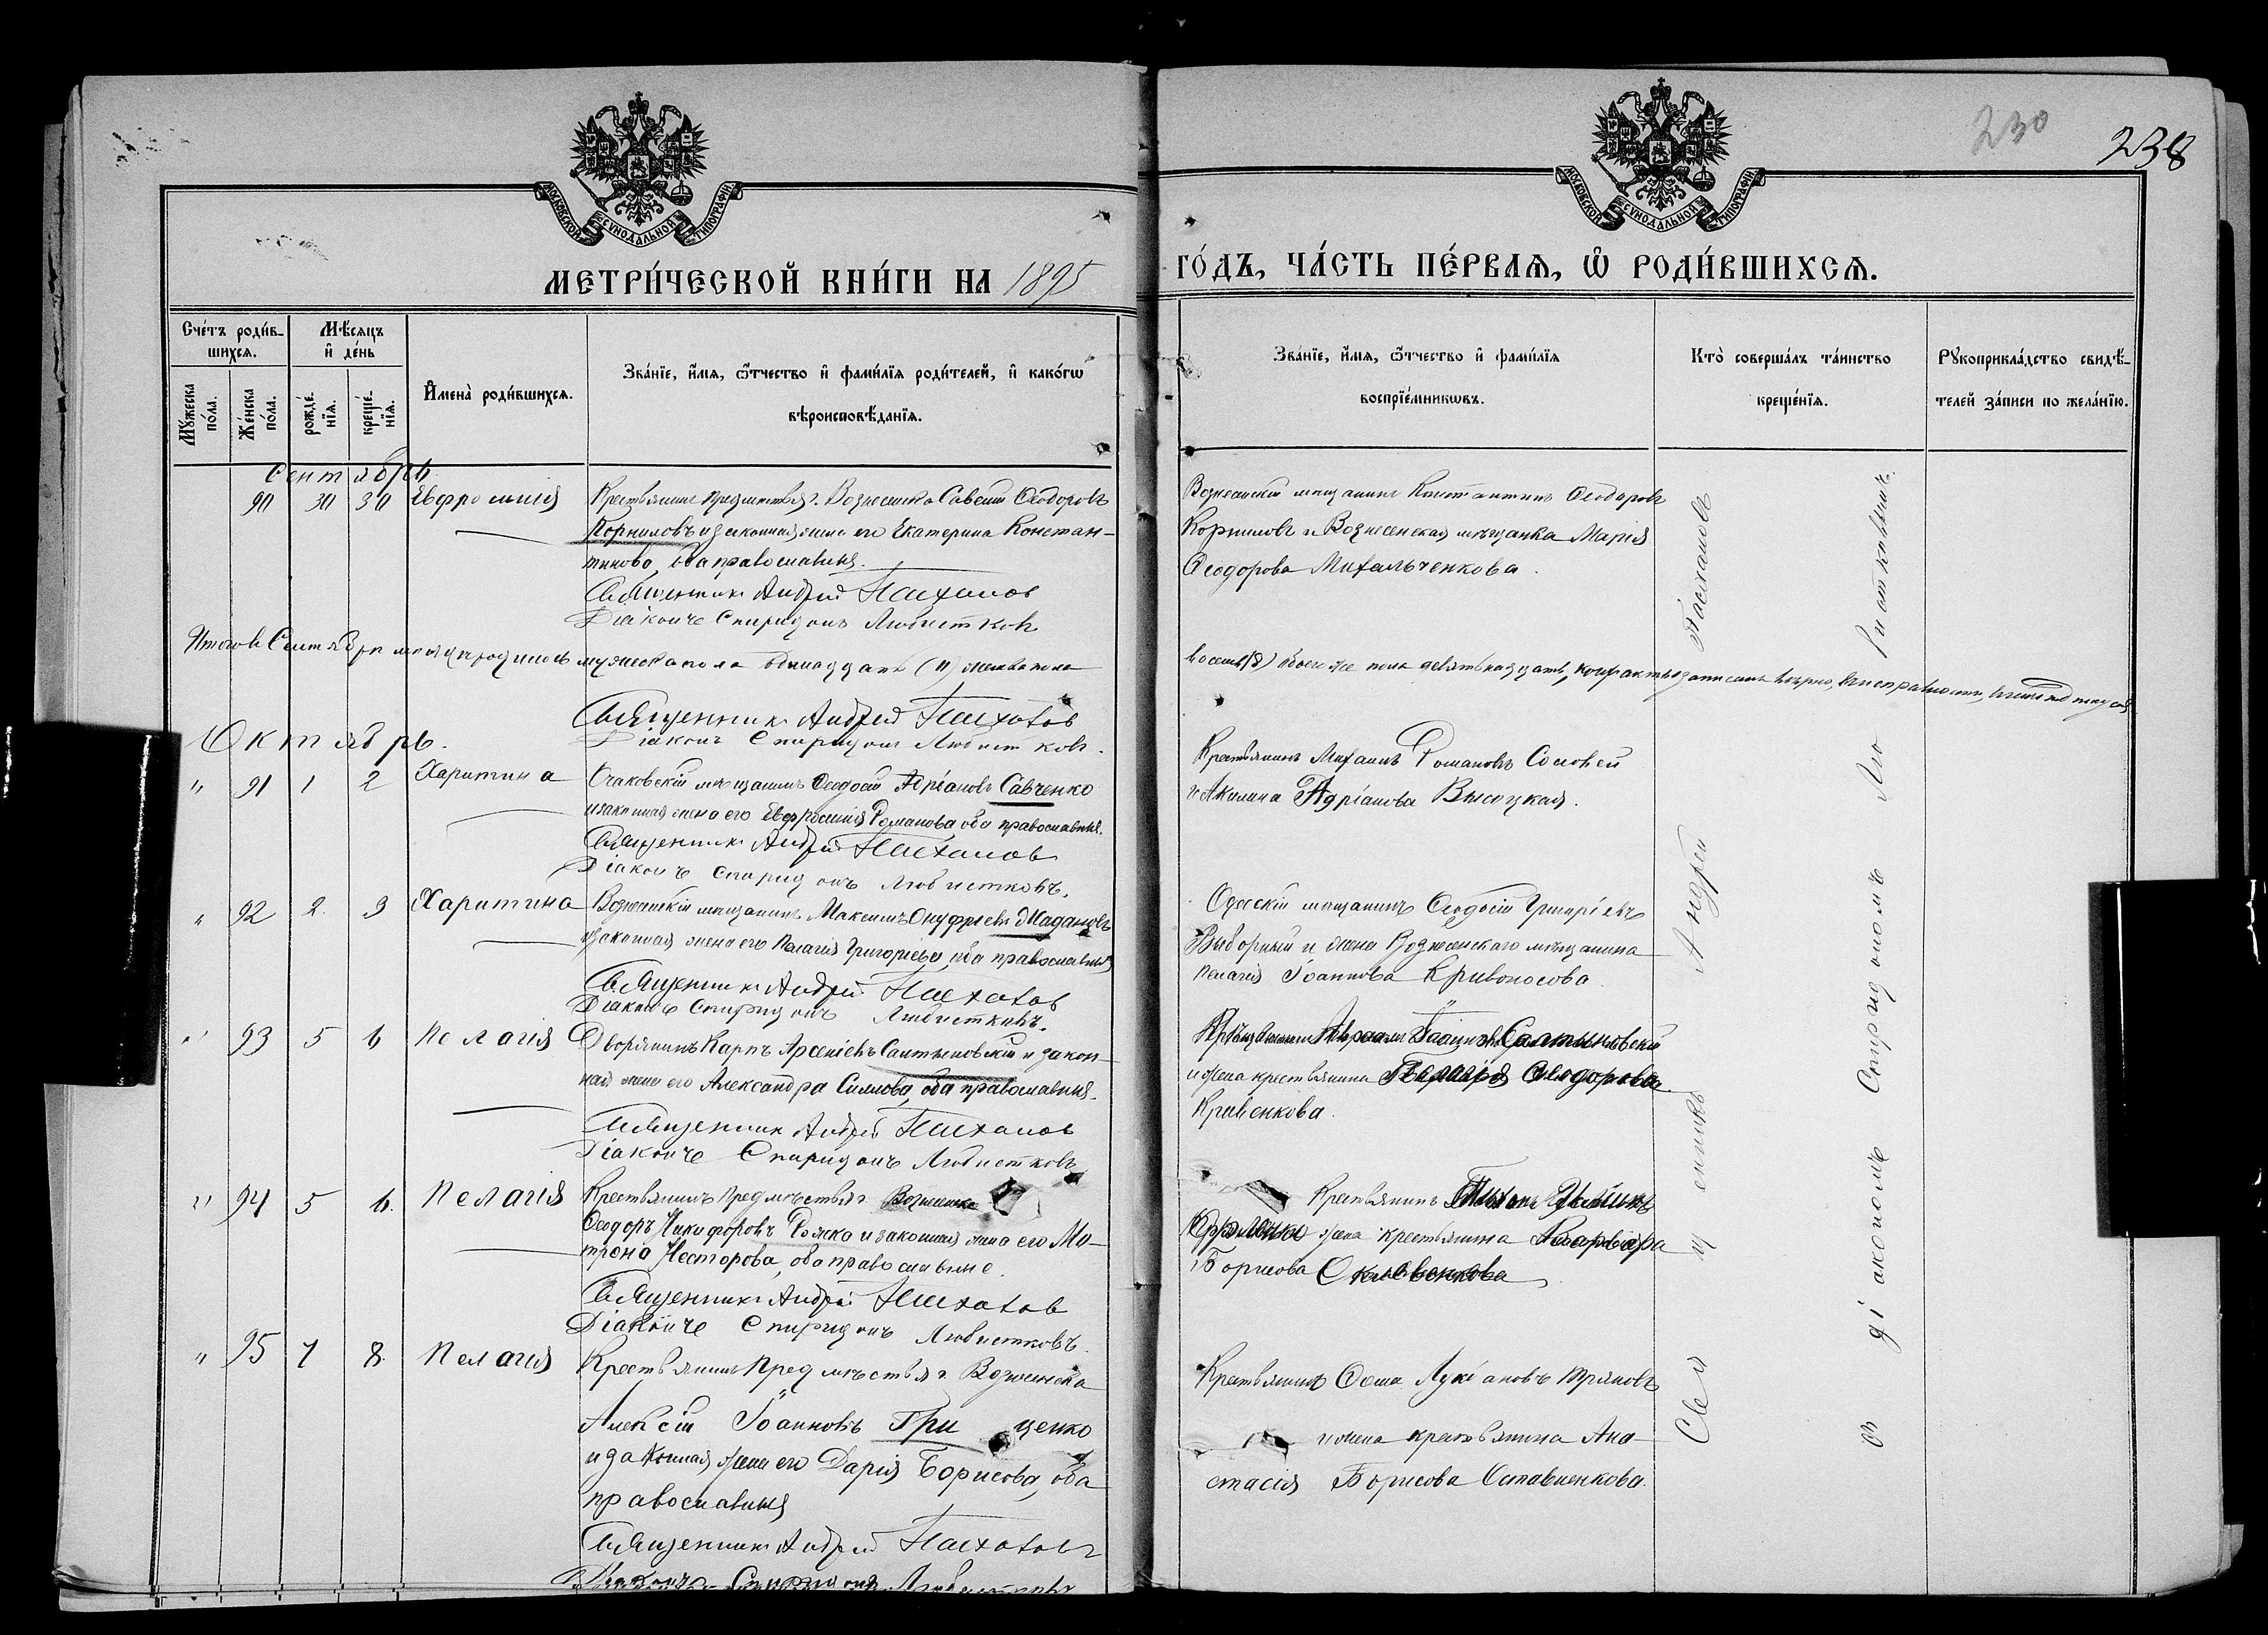 230
238
МОСКОВСКОЙ СѴНОДАЛЬНОЙ ТИПОГРАФІИ
МОСКОВСКОЙ СѴНОДАЛЬНОЙ ТИПОГРАФІИ
МЕТРИ́ЧЕСКОЙ КНИ́ГИ НА 1895 ГО́ДЪ, ЧА́СТЬ ПЕ́РВАѦ, Ѿ РОДИ́ВШИХСѦ.
Сче́тъ роди́в-
шихсѧ.
Мѣ́сѧцъ
и҆ де́нь
Мꙋ́жеска по́ла.
Же́нска по́ла.
рожде́нїѧ.
креще́нїѧ.
И҆мена̀ роди́вшихсѧ.
Зва́нїе, и҆́мѧ, ѻ҆́тчество и҆ фами́лїѧ роди́телей, и҆ како́гѡ
вѣроисповѣ́данїѧ.
Зва́нїе, и҆́мѧ, ѻ҆́тчество и҆ фами́лїѧ
воспрїе́мникѡвъ.
Кто̀ соверша́лъ та́инство
креще́нїѧ.
Рꙋкоприкла́дство свидѣ́-
телей за́писи по жела́нїю.
Сентябрь
90 30 30 Евфросинія
Крестьянинъ предмѣстья г. Вознесенска Савелій Ѳеодоровъ
Корниловъ и законная жена его Екатерина Констан-
тинова, оба православныя.
Священникъ Андрей Пасхаловъ
Діаконъ Спиридонъ Любистковъ
Вознесенскій мѣщанинъ Константинъ Ѳеодоровъ
Корниловъ и Вознесенская мѣщанка Марія
Ѳеодорова Михальченкова.
Итого въ Сентябрѣ мѣсяцѣ родилось мужеска пола одиннадцать (11) женска пола
восемь (8) обоего же пола девятьнадцать, записаны вѣрно,
Священникъ Андрей Пасхаловъ
Діаконъ Спиридонъ Любистковъ.
Октябрь.
" 91 1 2 Харитина
Очаковскій мѣщанинъ Ѳеодосій Адріановъ Савченко
и законная жена его Евфросинія Романова, оба православныя.
Священникъ Андрей Пасхаловъ
Діаконъ Спиридонъ Любистковъ.
Крестьянинъ Михаилъ Романовъ Соловей
и Акилина Адріанова Высоцкая.
" 92 2. 3 Харитина
Вознесенскій мѣщанинъ Максимъ Онуфріевъ
и законная жена его Пелагія Григоріева, оба православныя
Священникъ Андрей Пасхаловъ
Діаконъ Спиридонъ Любистковъ.
Одесскій мѣщанинъ Ѳеодосій Григоріевъ
Выборный и жена Вознесенскаго мѣщанина
Пелагія Іоаннова Кривоносова.
" 93 5 6 Пелагія
Дворянинъ Карпъ Арсеніевъ Салтыковскій и закон-
ная жена его Александра Симнова, оба православныя.
Священникъ Андрей Пасхаловъ
Діаконъ Спиридонъ Любистковъ
и жена крестьянина Пелагія Ѳеодорова
Кривенкова.
" 94 5 6. Пелагія
Крестьянинъ предмѣстья г. Вознесенска
Ѳеодоръ Никифоровъ и законная жена его Ма-
трона Несторова, оба православные.
Священникъ Андрей Пасхаловъ
Діаконъ Спиридонъ Любистковъ.
Крестьянинъ
жена крестьянина Варвара
Борисова
" 95 7 8. Пелагія
Крестьянинъ предмѣстья г. Вознесенска
Алексій Іоанновъ Гриценко
и законная жена его Дарія Борисова, оба
православныя
Священникъ Андрей Пасхаловъ
Діаконъ Спиридонъ Любистковъ
Крестьянинъ Ѳома Лукіановъ
и жена крестьянина Ана-
стасія Борисова Оставненкова.
Священникъ Андрей Пасхаловъ
съ діакономъ Спиридономъ Любистковымъ